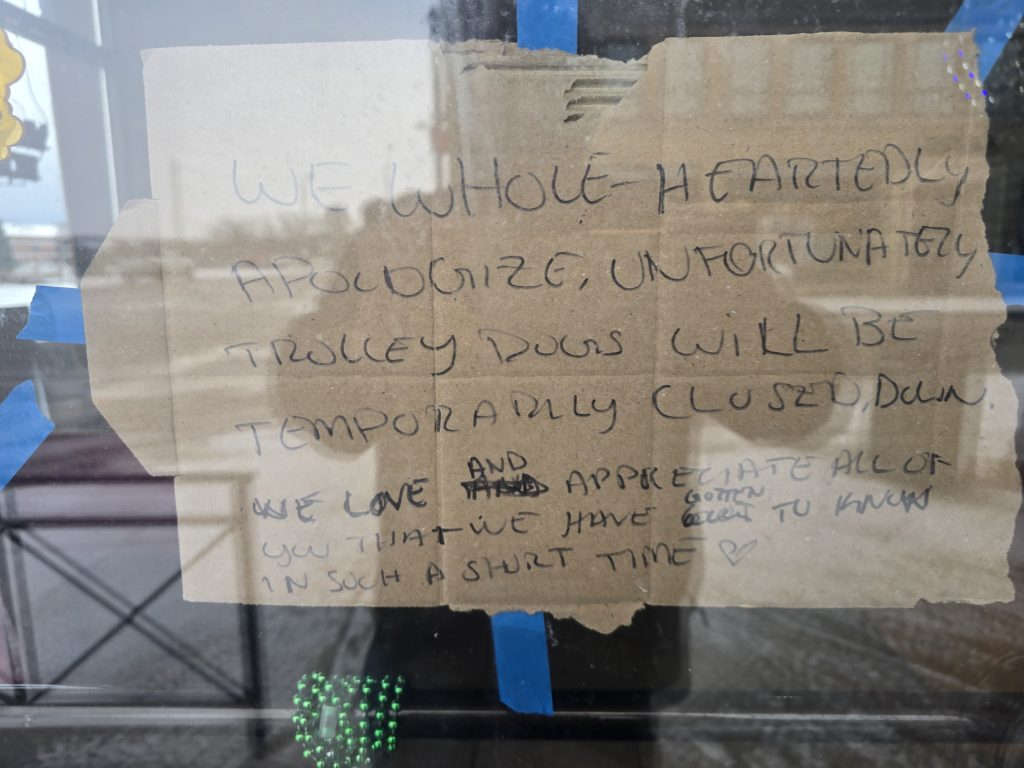 WE WHOLE-HEARTEDLY
APOLOGIZE, UNFORTUNATELY
TROLLEY DOGS WILL BE
TEMPORARILY CLOSED, DOWN.
WE LOVE AND APPRECIATE ALL OF
YOU THAT WE HAVE GOTTEN TO KNOW
IN SUCH A SHORT TIME ♡